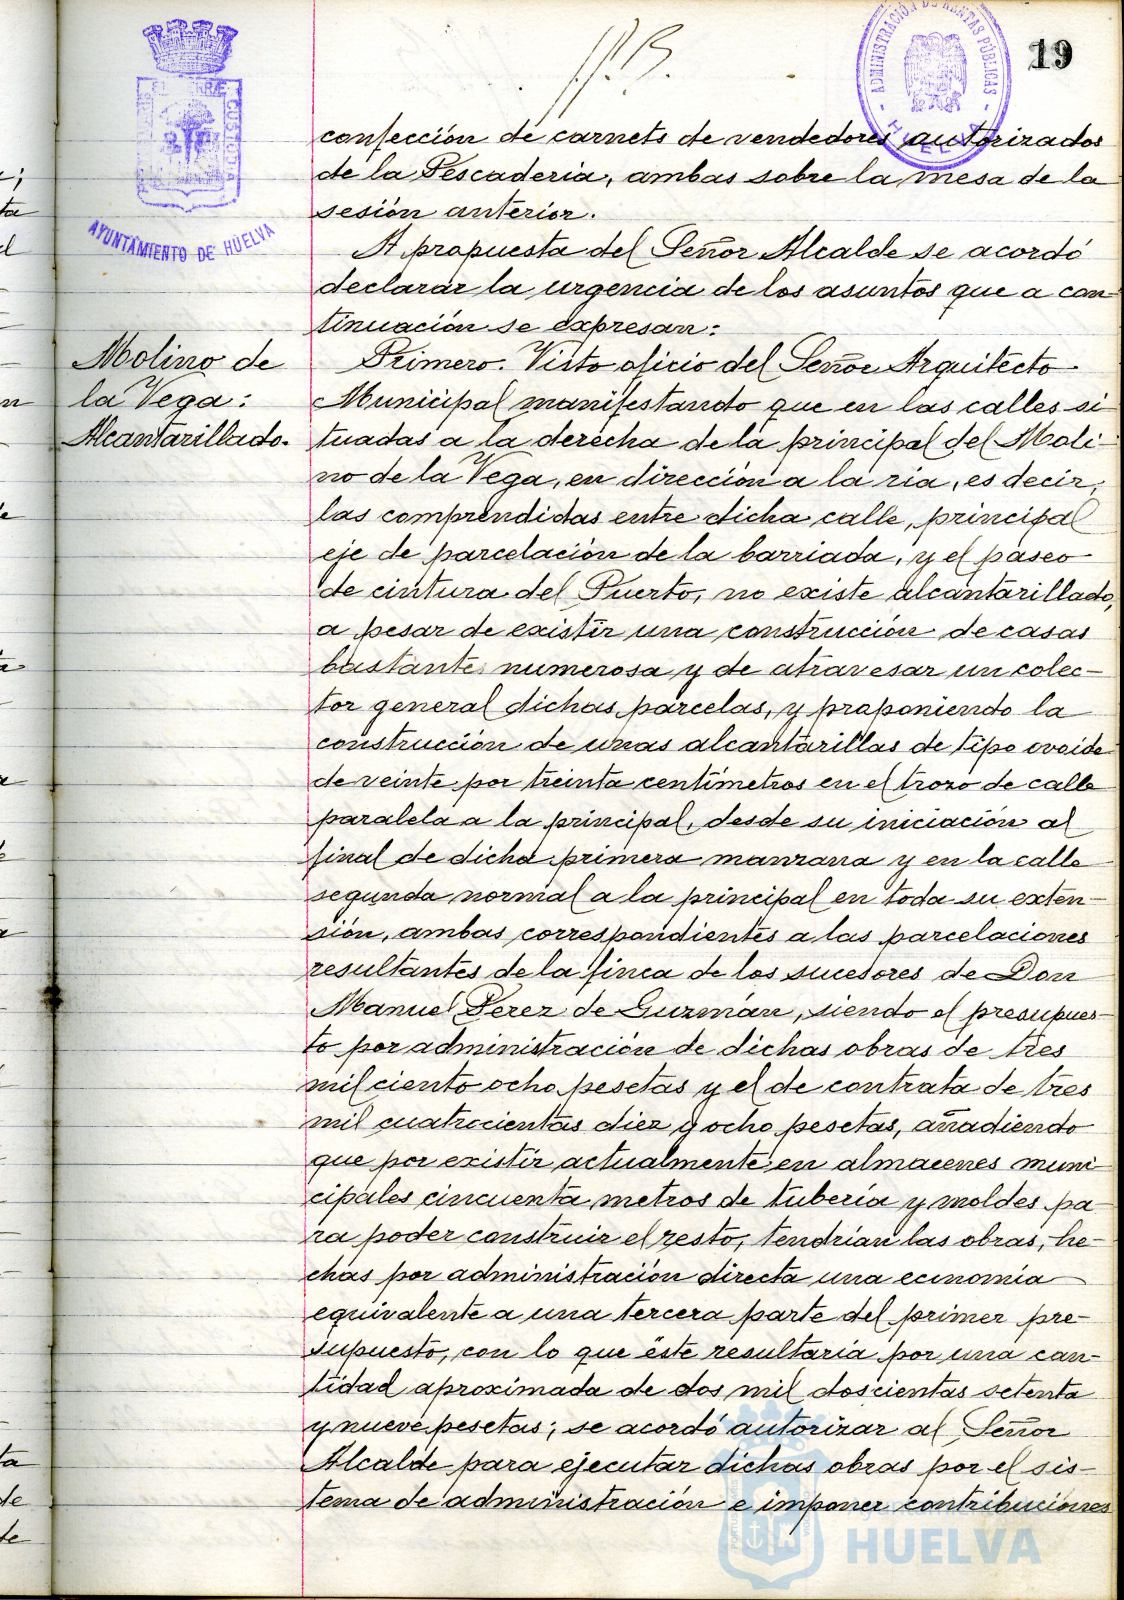 19
ADMINISTRACIÓN DE RENTAS PÚBLICAS
HUELVA
CUSTODIA
AYUNTAMIENTO DE HUELVA
confección de carnets de vendedores autorizados
de la Pescaderia, ambas sobre la mesa de la
sesión anterior.
A propuesta del Señor Alcalde se acordó
declarar la urgencia de los asuntos que a con-
tinuación se expresan:
Molino de
la Vega:
Alcantarillado.
Primero. Visto oficio del Señor Arquitecto
Municipal manifestando que en las calles si-
tuadas a la derecha de la principal del Moli-
no de la Vega, en dirección a la ria, es decir,
las comprendidas entre dicha calle, principal
eje de parcelación de la barriada, y el paseo
de cintura del Puerto, no existe alcantarillado,
a pesar de existir una construcción de casas
bastante numerosa y de atravesar un colec-
tor general dichas parcelas, y proponiendo la
construcción de unas alcantarillas de tipo ovoide
de veinte por treinta centímetros en el trozo de calle
paralela a la principal, desde su iniciación al
final de dicha primera manzana y en la calle
segunda normal a la principal en toda su exten-
sión, ambas correspondientes a las parcelaciones
resultantes de la finca de los sucesores de Don
Manuel Perez de Guzmán, siendo el presupues-
to por administración de dichas obras de tres
mil ciento ocho pesetas y el de contrata de tres
mil cuatrocientas diez y ocho pesetas, añadiendo
que por existir actualmente en almacenes muni-
cipales cincuenta metros de tubería y moldes pa-
ra poder construir el resto, tendrían las obras, he-
chas por administración directa una economía
equivalente a una tercera parte del primer pre-
supuesto, con lo que éste resultaría por una can-
tidad aproximada de dos mil doscientas setenta
y nueve pesetas; se acordó autorizar al Señor
Alcalde para ejecutar dichas obras por el sis-
tema de administración e imponer contribuciones
HUELVA